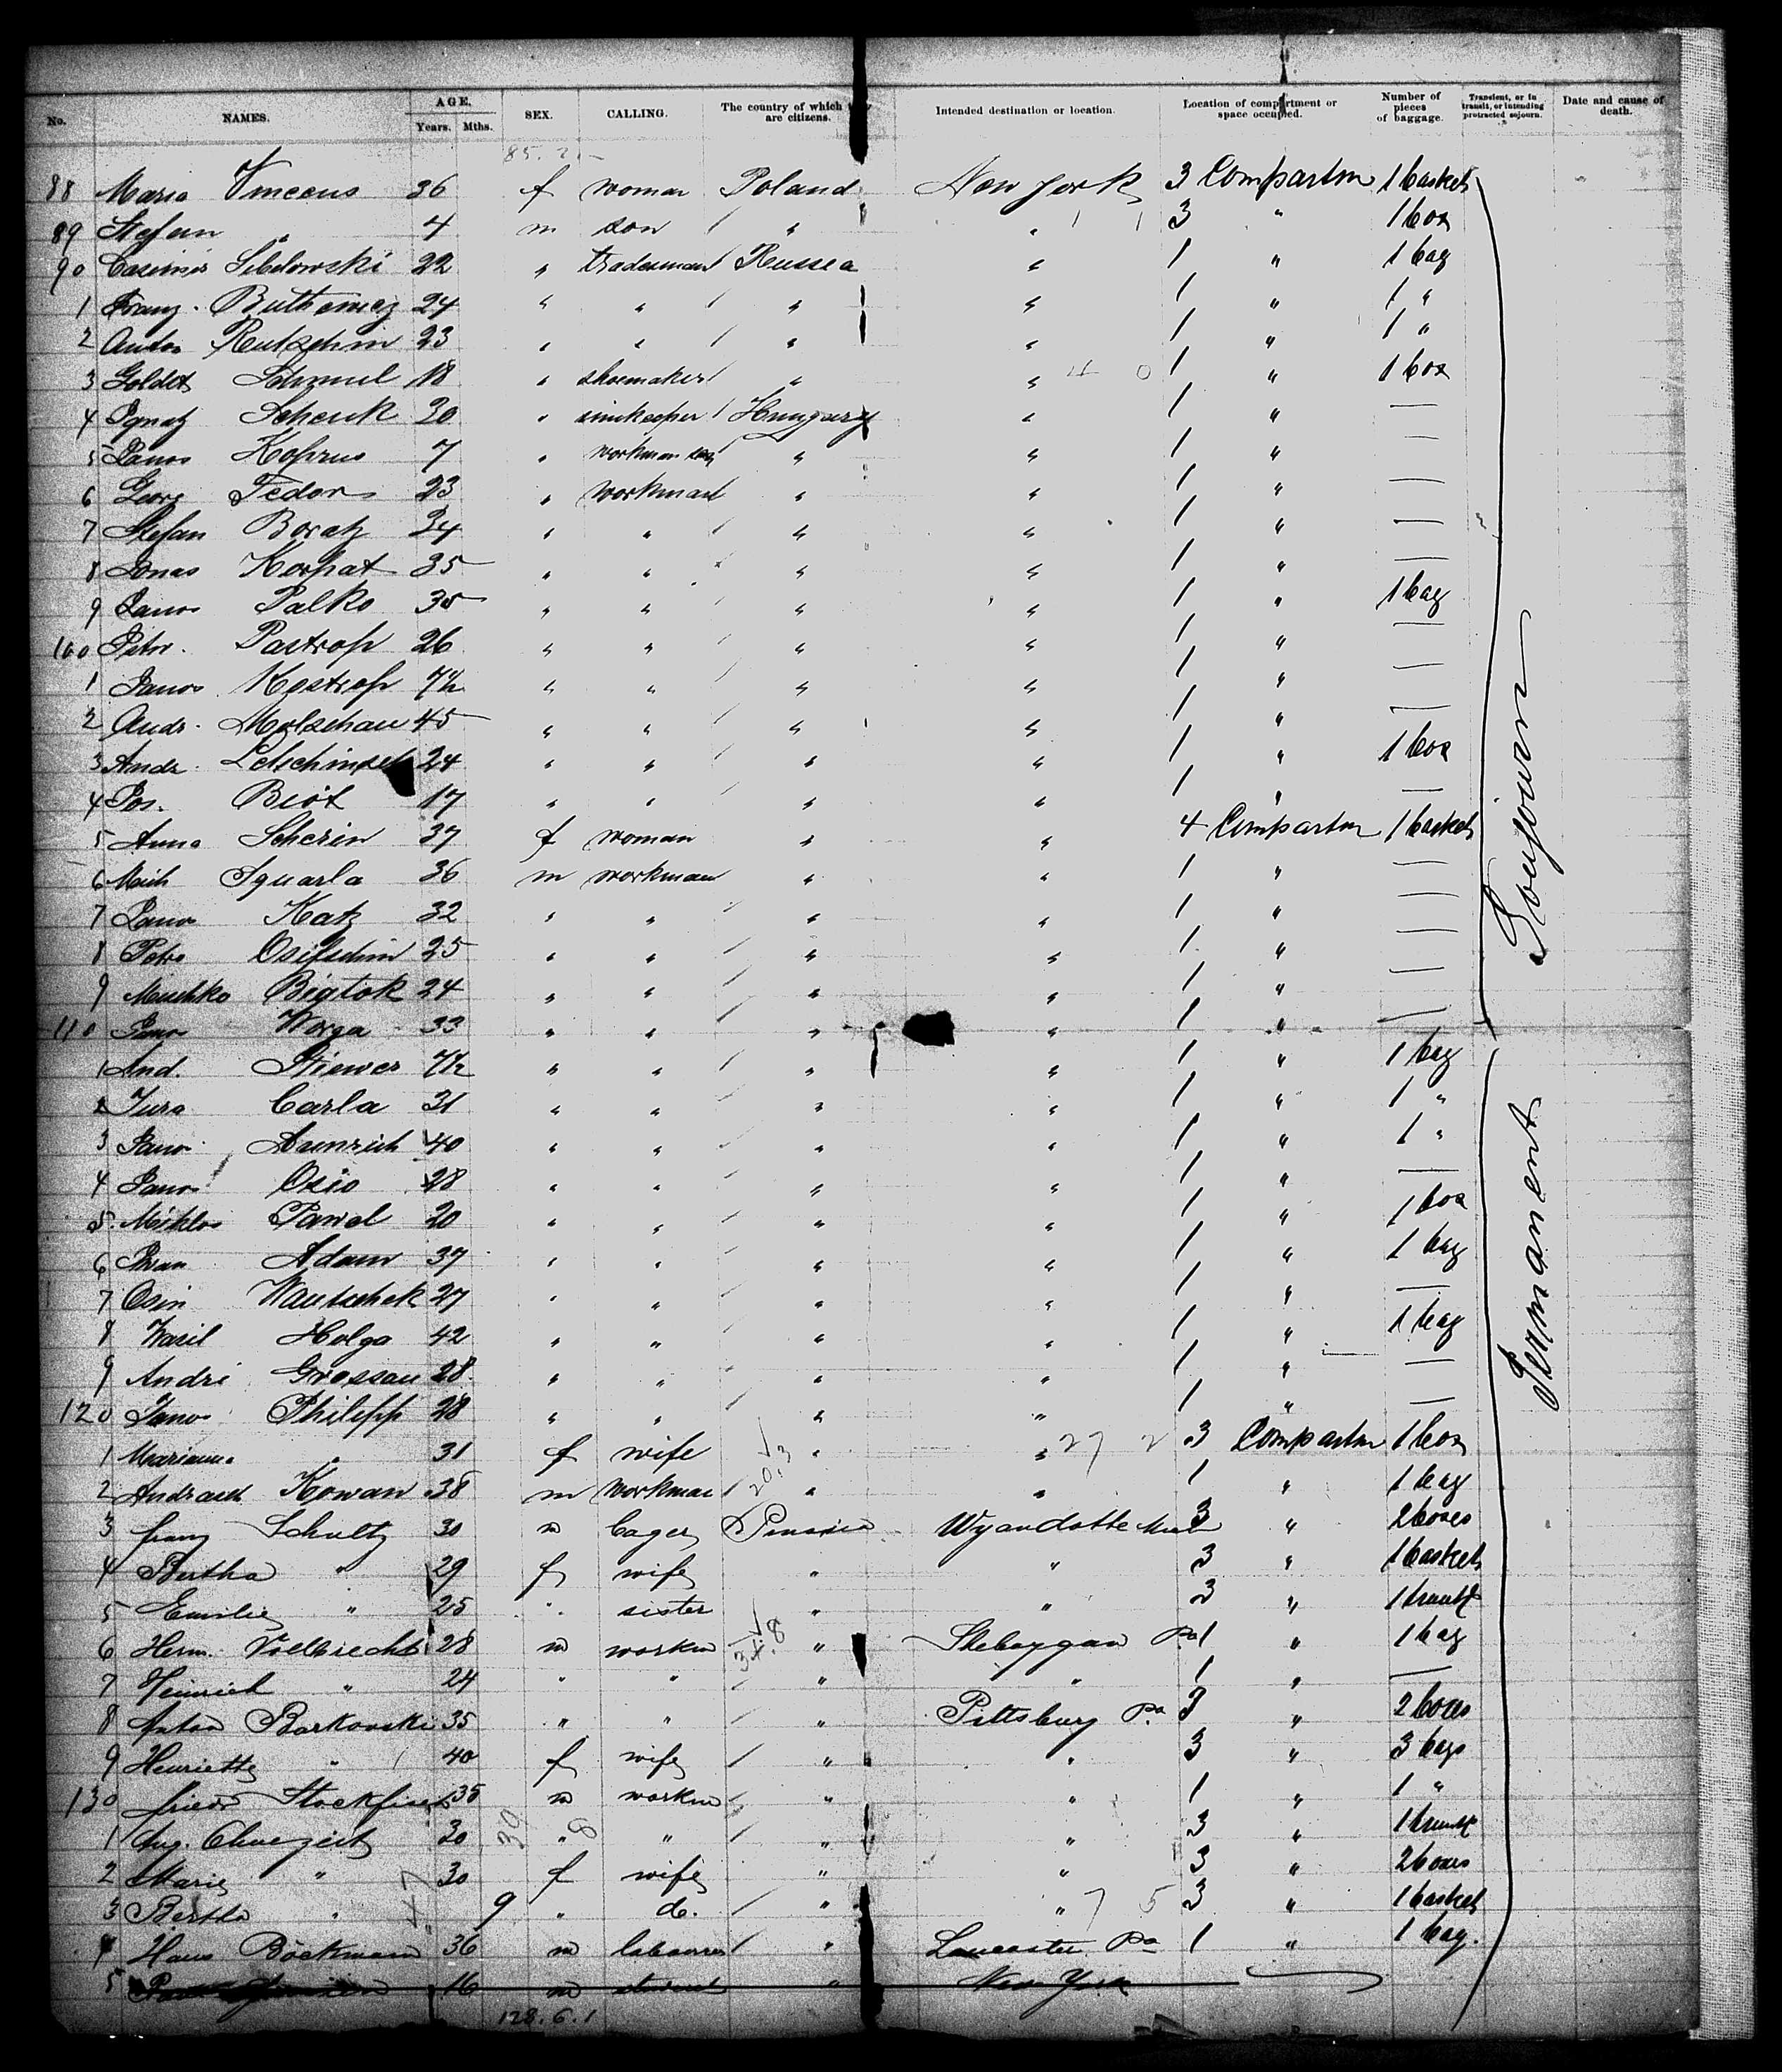 No. NAMES. AGE. Years. Mths. SEX. CALLING. The country of which they are citizens. Intended destination or location. Location of compartment or space occupied. Number of pieces of baggage. Transient, or in transit, or intending protracted sojourn. Date and cause of death.
88 Maria Vincens 36 f woman Poland New York 3 Compartm 1 basket
89 Stefan " 4 m son " " 3 " 1 box
90 Casimir 22 " tradesman Russia " 1 " 1 bag
1 Franz 24 " " " " 1 " 1 "
2 Anton Rutschin 23 " " " " 1 " 1 "
3 Schmul 18 " shoemaker " " 1 " 1 box
4 Ignatz Schenk 30 " Hungary " 1 " —
5 Janos 7 " workman son " " 1 " —
6 Georg Fedor 23 " workman " " 1 " —
7 Stefan Boratz 34 " " " " 1 " —
8 Jonas Korpat 35 " " " " 1 " —
9 Janos Palko 35 " " " " 1 " 1 bag
100 Petr. Pastrop 26 " " " " 1 " —
1 Janos Kostrop " " " " 1 " —
2 Andr. Molschan 45 " " " " 1 " —
3 Andr. 24 " " " " 1 " 1 box
4 Jos. Biót 17 " " " " 1 " —
5 Anna Scherin 37 f woman " " 4 Compartm 1 basket
6 Mich Sguarla 36 m workman " " 1 " —
7 Janos Katz 32 " " " " 1 " —
8 Petro Osifschin 25 " " " " 1 " —
9 Muschko Bigtok 24 " " " " 1 " —
110 Janos Worga 33 " " " " 1 " —
1 And. Stiewer " " " " 1 " 1 bag
2 Jura Carla 31 " " " " 1 " 1 "
3 Janos 40 " " " " 1 " 1 "
4 Janos Osio 28 " " " " 1 " —
5 Miklos Pawel 20 " " " " 1 " 1 box
6 Adam 37 " " " " 1 " 1 bag
7 Osin Wautschek 27 " " " " 1 " —
8 Wasil Holga 42 " " " " 1 " 1 bag
9 Andri Grossau 28 " " " " 1 " —
120 Janos Philipp 28 " " " " 1 " —
1 Marianna " 31 f wife " " 3 Compartm 1 box
2 Andrasch Kowan 38 m workman " " 1 " 1 bag
3 Franz Schultz 30 m Prussia Wyandotte 3 " 2 boxes
4 Bertha " 29 f wife " " 3 " 1 basket
5 Emilie " 25 " sister " " 3 " 1 trunk
6 Herm. Vollbrecht 28 m workm " Sheboygan Pa 1 " 1 bag
7 Heinrich " 24 " " " " 1 " —
8 Anton Borkowski 35 " " " Pittsburg Pa 3 " 2 boxes
9 Henriette " 40 f wife " " 3 " 3 bags
130 Friedr Stockfisch 35 m workm " " 1 " 1 "
1 Aug. 30 " " " " 3 " 1 trunk
2 Marie " 30 f wife " " 3 " 2 boxes
3 Bertha " 9 " d. " " 3 " 1 basket
4 Hans Böckmann 36 m labourer " Lancaster Pa 1 " 1 bag.
5 16 m student " New York
128.6.1
Soujourn
Permanent